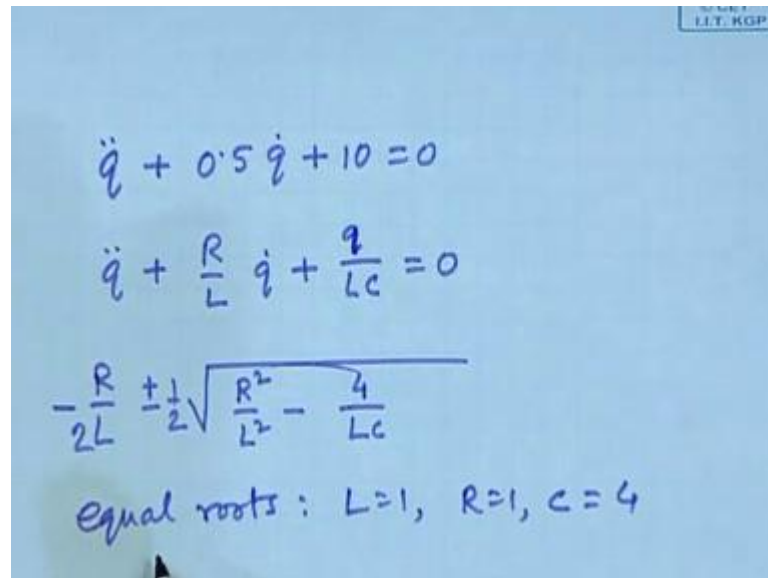 I.I.T. KGP
q̈ + 0.5 q̇ + 10 = 0
q̈ + R/L q̇ + q/LC = 0
-R/2L ± 1/2 √(R²/L² - 4/LC)
equal roots : L=1, R=1, C=4